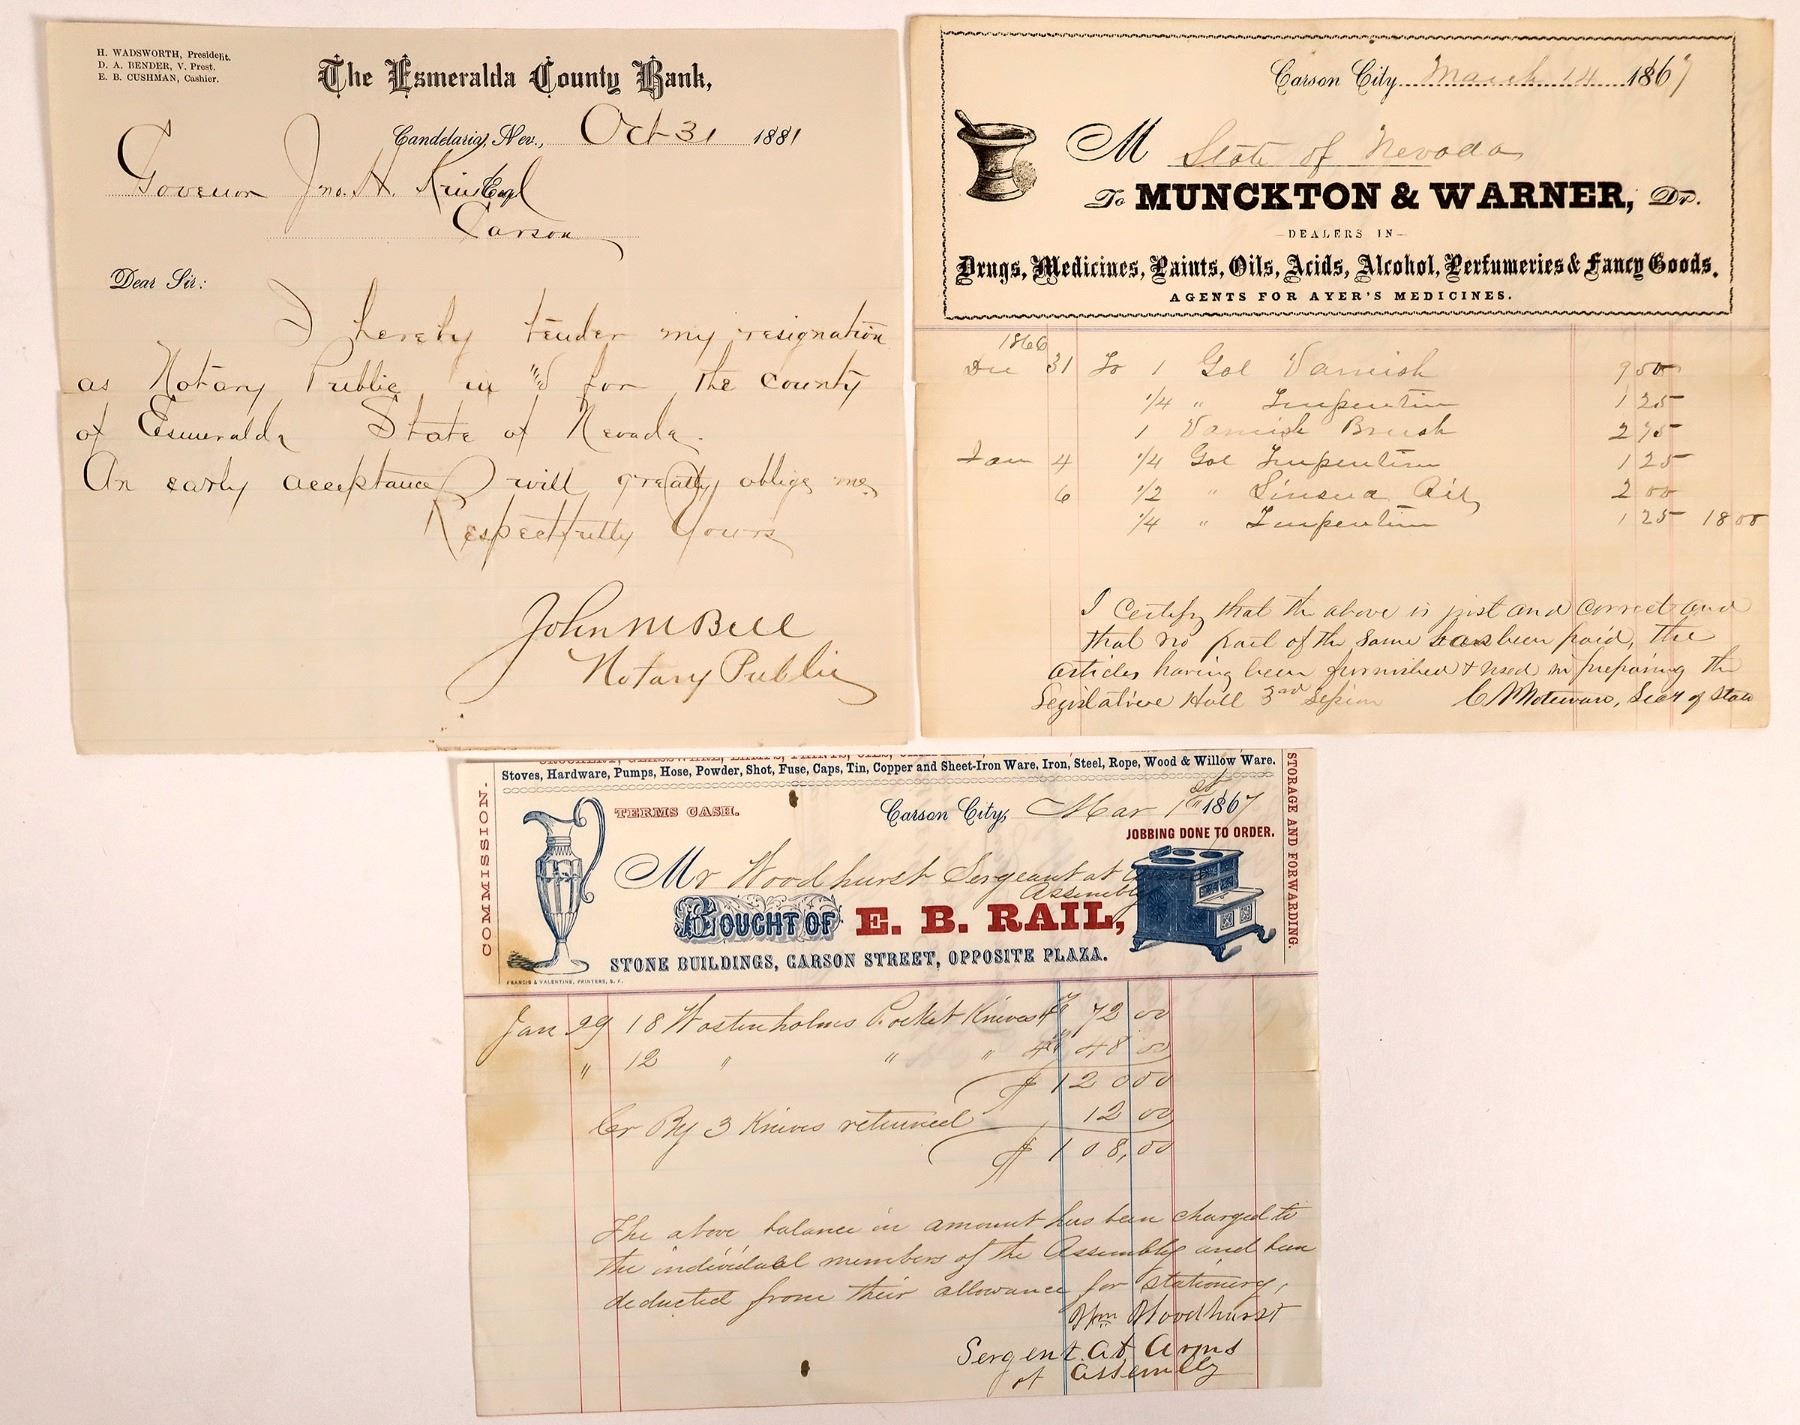 H. WADSWORTH, President.
D. A. BENDER, V. Prest.
E. B. CUSHMAN, Cashier.
The Esmeralda County Bank,
Candelaria, Nev., Oct 31 1881
Governor Jno. H. Kinkead
Carson
Dear Sir:
I hereby tender my resignation
as Notary Public in & for the county
of Esmeralda State of Nevada.
An early acceptance will greatly oblige me
Respectfully Yours
John M Bell
Notary Public
Carson City March 14 1867
M State of Nevada
To MUNCKTON & WARNER, Dr.
DEALERS IN
Drugs, Medicines, Paints, Oils, Acids, Alcohol, Perfumeries & Fancy Goods.
AGENTS FOR AYER'S MEDICINES.
1866
Dec 31 To 1 Gal Varnish 9 00
1/4 " Turpentine 1 25
1 Varnish Brush 2 75
Jan 4 1/4 Gal Turpentine 1 25
6 1/2 " Linseed Oil 2 00
1/4 " Turpentine 1 25 18 00
I Certify that the above is just and correct and
that no part of the same has been paid, the
articles having been furnished & used in preparing the
Legislative Hall 3rd Session C N Noteware, Secy of State
Stoves, Hardware, Pumps, Hose, Powder, Shot, Fuse, Caps, Tin, Copper and Sheet-Iron Ware, Iron, Steel, Rope, Wood & Willow Ware.
COMMISSION.
STORAGE AND FORWARDING.
TERMS CASH.
Carson City, Mar 1st 1867
JOBBING DONE TO ORDER.
Mr Woodhurst Sergeant at Arms
Assembly
BOUGHT OF E. B. RAIL,
STONE BUILDINGS, CARSON STREET, OPPOSITE PLAZA.
FRANCIS & VALENTINE, PRINTERS, S. F.
Jan 29 18 Wostenholms Pocket Knives 4 72 00
" 12 " " " 4 48 00
$ 120 00
Cr By 3 Knives returned 12 00
$ 108,00
The above balance in amount has been charged to
the individual members of the Assembly and been
deducted from their allowance for stationery,
Wm Woodhurst
Sergent. At Arms
of Assembly